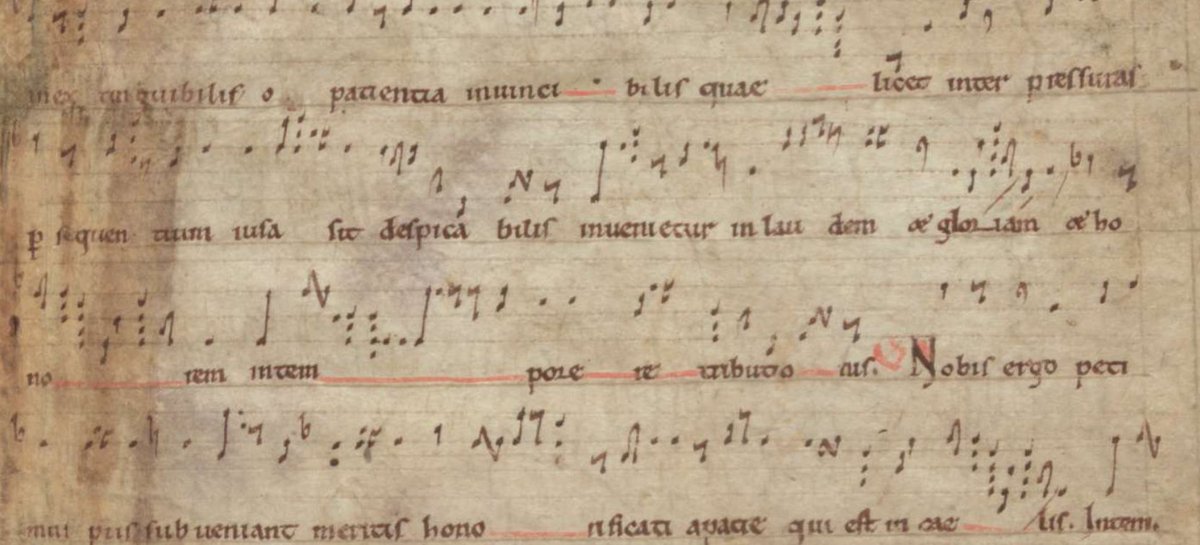 inex tinguibilis o patientia invinci bilis quae licet inter pressuras
p sequen tium iusa sit despica bilis invenietur in lau dem & gloriam & ho
no rem in tem pore re tributio nis. Nobis ergo peti
mus piis subveniant meritis hono rificati a patre qui est in cae lis. In tem.